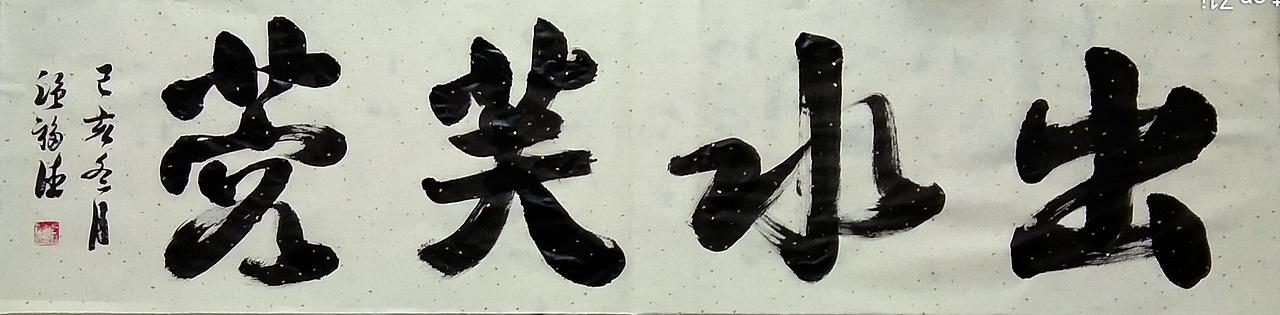 出水芙蓉
己亥冬月
福